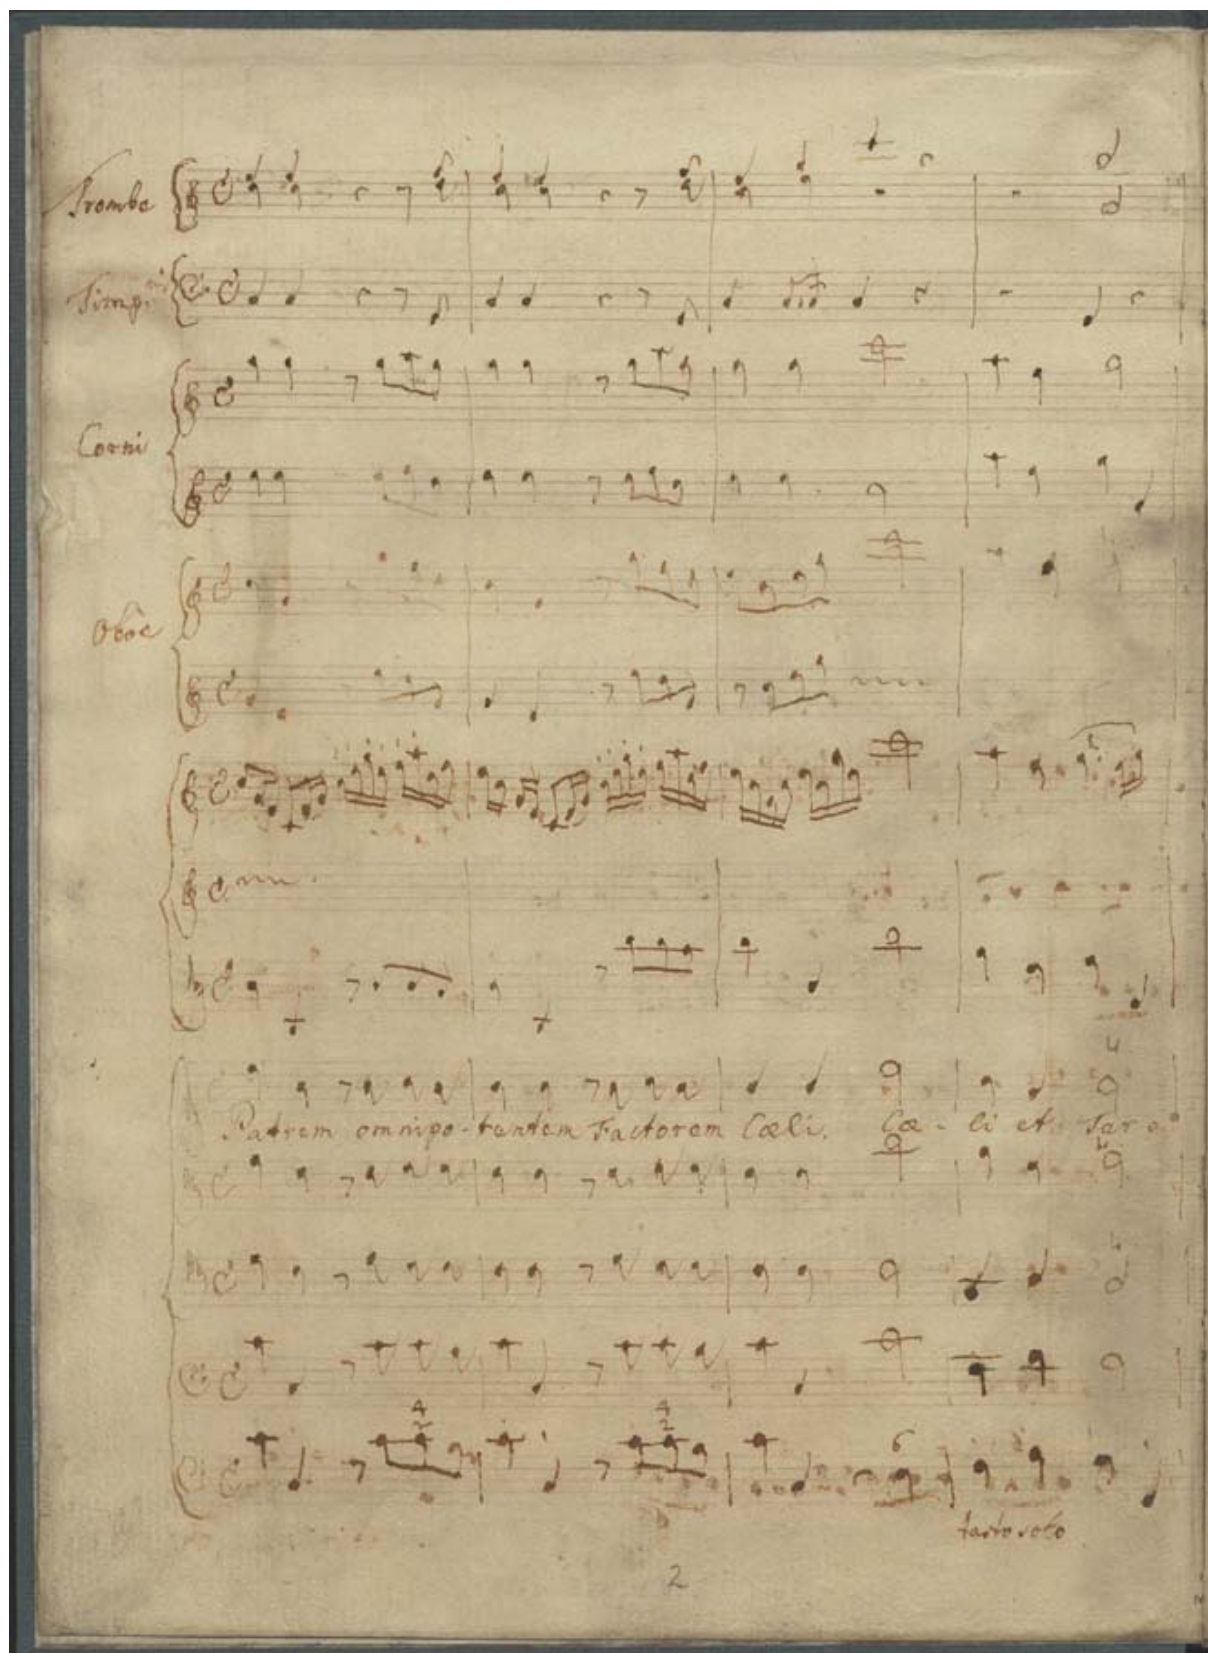 Trombe
Timp:ni
Corni
Oboe
4
Patrem omnipo-tentem Factorem Cœli. Cœ-li et Ter
4 4
2 2
6
tasto solo
2